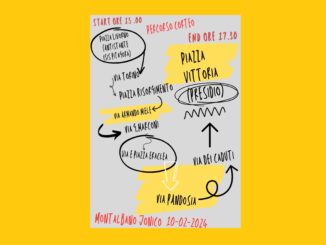 START ORE 15.00
PERCORSO CORTEO
END ORE 17.30
PIAZZA LIVORNO
(ANTISTANTE
VIA TORINO
PIAZZA RISORGIMENTO
VIA ARMANDO MELE
VIA G.MARCONI
VIA E PIAZZA ERACLEA
VIA PANDOSIA
VIA DEI CADUTI
PIAZZA
VITTORIA
(PRESIDIO)
MONTALBANO JONICO 10-02-2024